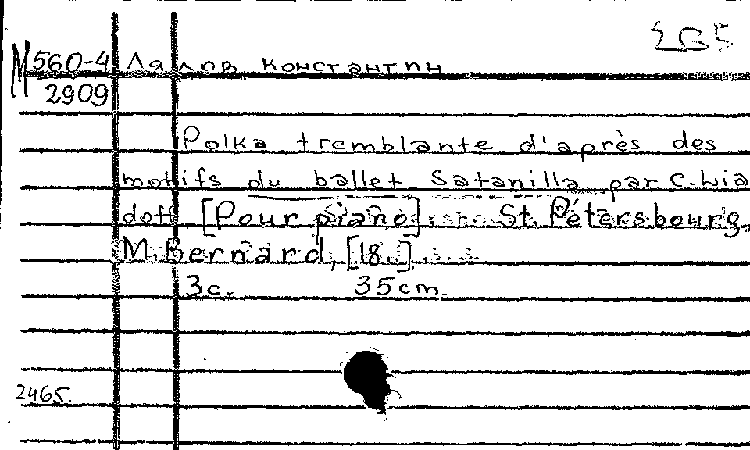 265
М560-4 Лядов константин
2909
Polka tremblante d'après des
motifs du ballet Satanilla par C. Lia
doff [Pour piano]. St. Pétersbourg,
M. Bernard, [18..]
3с. 35cm.
2465.